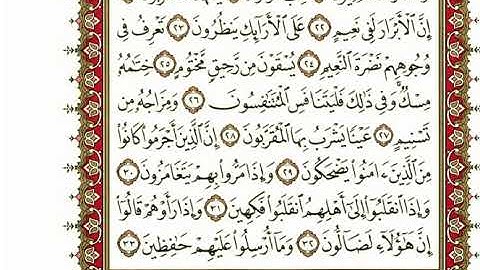 إِنَّ ٱلۡأَبۡرَارَ لَفِي نَعِيمٍ ٢٢ عَلَى ٱلۡأَرَآئِكِ يَنظُرُونَ ٢٣ تَعۡرِفُ فِي
وُجُوهِهِمۡ نَضۡرَةَ ٱلنَّعِيمِ ٢٤ يُسۡقَوۡنَ مِن رَّحِيقٖ مَّخۡتُومٍ ٢٥ خِتَٰمُهُۥ
مِسۡكٞۚ وَفِي ذَٰلِكَ فَلۡيَتَنَافَسِ ٱلۡمُتَنَٰفِسُونَ ٢٦ وَمِزَاجُهُۥ مِن
تَسۡنِيمٍ ٢٧ عَيۡنٗا يَشۡرَبُ بِهَا ٱلۡمُقَرَّبُونَ ٢٨ إِنَّ ٱلَّذِينَ أَجۡرَمُواْ كَانُواْ
مِنَ ٱلَّذِينَ ءَامَنُواْ يَضۡحَكُونَ ٢٩ وَإِذَا مَرُّواْ بِهِمۡ يَتَغَامَزُونَ ٣٠
وَإِذَا ٱنقَلَبُوٓاْ إِلَىٰٓ أَهۡلِهِمُ ٱنقَلَبُواْ فَكِهِينَ ٣١ وَإِذَا رَأَوۡهُمۡ قَالُوٓاْ
إِنَّ هَٰٓؤُلَآءِ لَضَآلُّونَ ٣٢ وَمَآ أُرۡسِلُواْ عَلَيۡهِمۡ حَٰفِظِينَ ٣٣